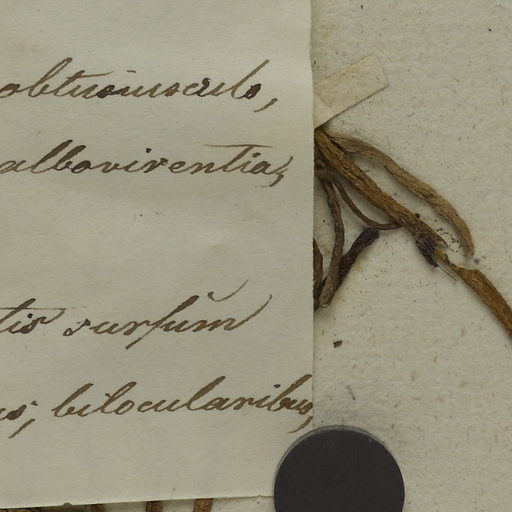 obtusiusculo,
albovirentia,
tis sursum
us, bilocularibus,